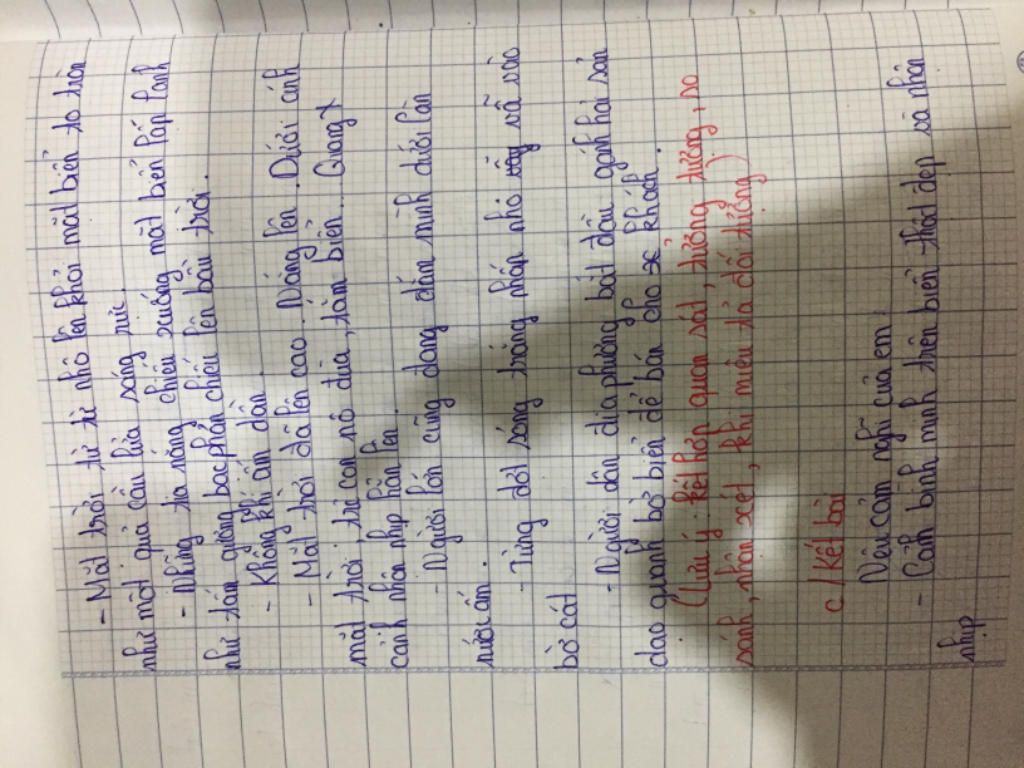 - Mặt trời từ từ nhô lên khỏi mặt biển to tròn
như một quả cầu lửa sáng rực.
- Những tia nắng chiếu xuống mặt biển lấp lánh
như tấm gương bạc phản chiếu lên bầu trời.
- Không khí ấm dần.
- Mặt trời đã lên cao. Nắng lên. Dưới ánh
mặt trời, trẻ con nô đùa, tắm biển. Quang
cảnh nhộn nhịp hẳn lên.
- Người lớn cũng đang đắm mình dưới làn
nước ấm.
- Từng đợt sóng trắng nhấp nhô vỗ vào
bờ cát.
- Người dân địa phương bắt đầu gánh hải sản
dạo quanh bờ biển để bán cho khách.
(Lưu ý: kết hợp quan sát, tưởng tượng, so
sánh, nhận xét, khi miêu tả đối tượng)
c/ Kết bài
Nêu cảm nghĩ của em.
- Cảnh bình minh trên biển thật đẹp và nhộn
nhịp